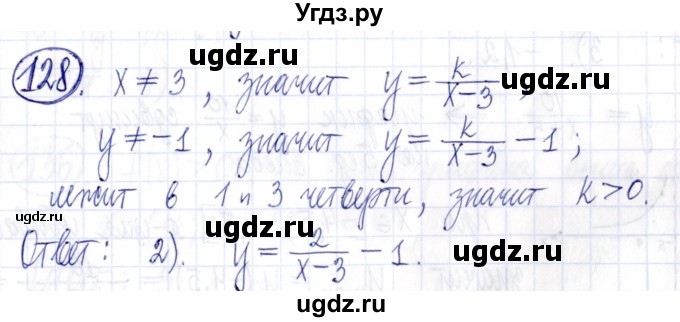 Угдз.ру
128. x ≠ 3, значит y = k/(x-3),
y ≠ -1, значит y = k/(x-3) - 1;
лежит в 1 и 3 четверти, значит k > 0.
Ответ: 2). y = 2/(x-3) - 1.
ugdz.ru
ugdz.ru
ugdz.ru
ugdz.ru
ugdz.ru
ugdz.ru
ugdz.ru
ugdz.ru